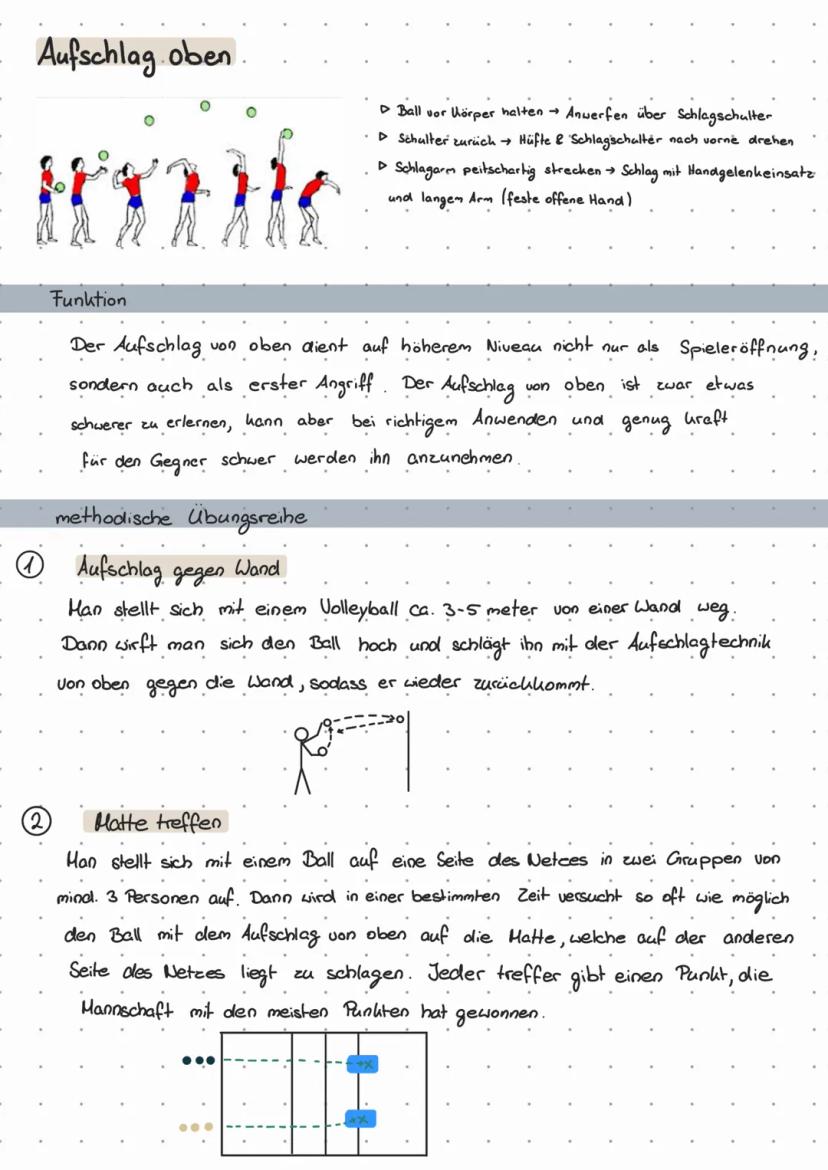 Aufschlag oben
▷ Ball vor Körper halten → Anwerfen über Schlagschulter
▷ Schulter zurück → Hüfte & Schlagschulter nach vorne drehen
▷ Schlagarm peitschartig strecken → Schlag mit Handgelenkeinsatz
und langem Arm (feste offene Hand)
Funktion
Der Aufschlag von oben dient auf höherem Niveau nicht nur als Spieleröffnung,
sondern auch als erster Angriff. Der Aufschlag von oben ist zwar etwas
schwerer zu erlernen, kann aber bei richtigem Anwenden und genug Kraft
für den Gegner schwer werden ihn anzunehmen.
methodische Übungsreihe
① Aufschlag gegen Wand
Man stellt sich mit einem Volleyball ca. 3-5 meter von einer Wand weg.
Dann wirft man sich den Ball hoch und schlägt ihn mit der Aufschlagtechnik
von oben gegen die Wand, sodass er wieder zurückkommt.
② Matte treffen
Man stellt sich mit einem Ball auf eine Seite des Netzes in zwei Gruppen von
mind. 3 Personen auf. Dann wird in einer bestimmten Zeit versucht so oft wie möglich
den Ball mit dem Aufschlag von oben auf die Matte, welche auf der anderen
Seite des Netzes liegt zu schlagen. Jeder treffer gibt einen Punkt, die
Mannschaft mit den meisten Punkten hat gewonnen.